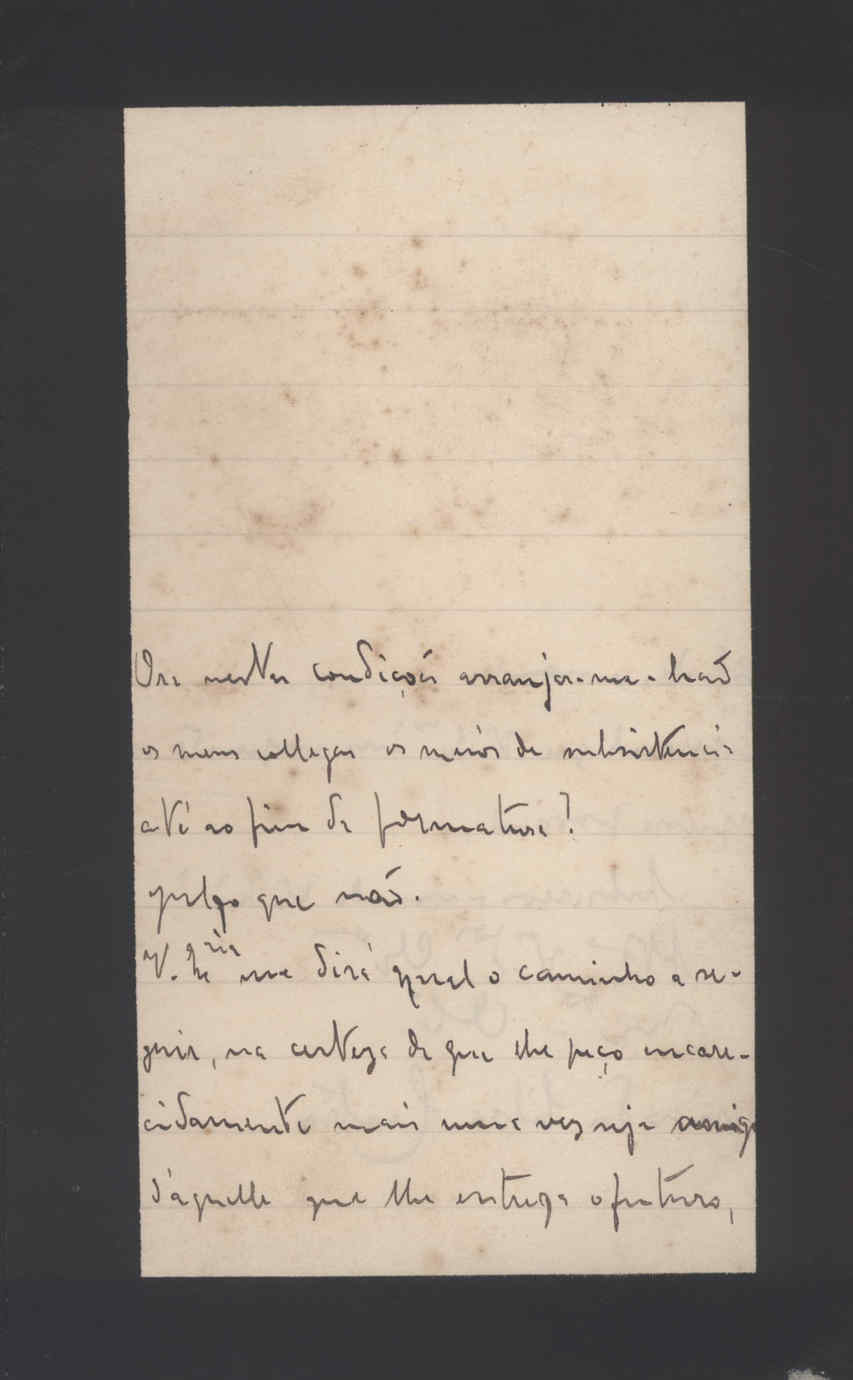 Ora nestas condições arranjar-me-hão
os meus collegas os meios de subsistencia
até ao fim da formatura?
julgo que não.
V. Ex.cia me dirá qual o caminho a se-
guir, na certeza de que lhe peço encare-
cidamente mais uma vez seja amigo
d'aquelle que lhe entrega o futuro,